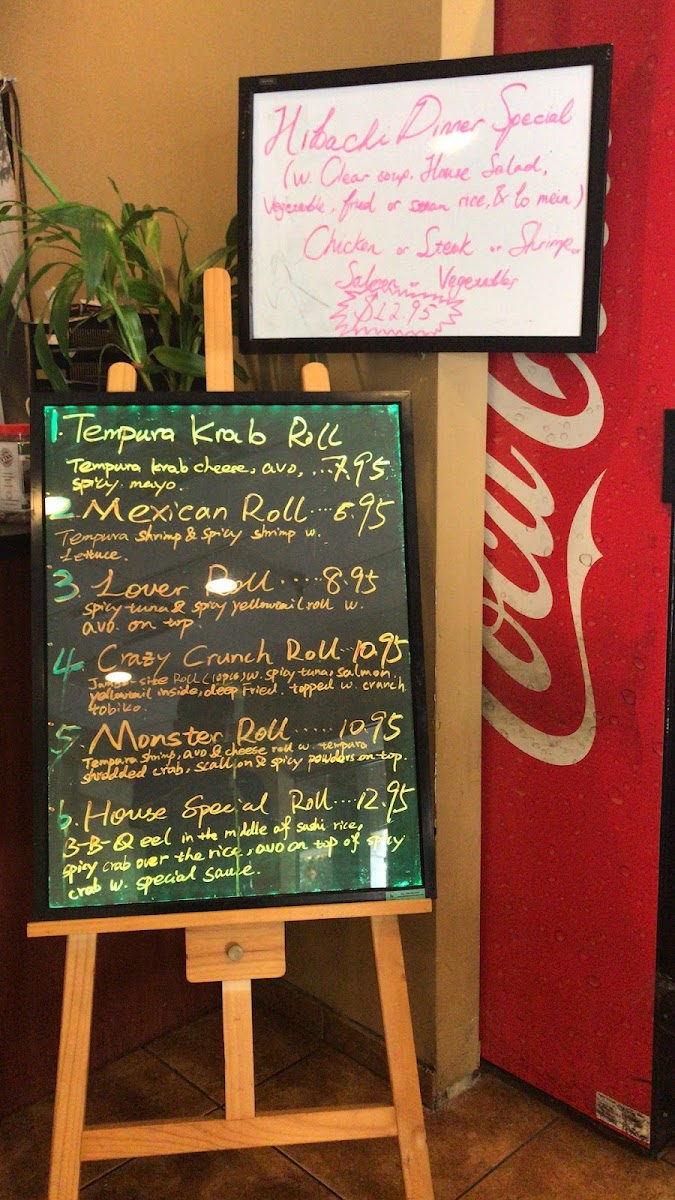 Hibachi Dinner Special
(w. Clear soup, House Salad,
Vegetable, fried or steam rice, & lo mein)
Chicken or Steak or Shrimp or
Salmon or Vegetables
$12.95
1. Tempura Krab Roll
Tempura krab cheese, avo, ...7.95
spicy mayo.
2. Mexican Roll...6.95
Tempura shrimp & spicy shrimp w.
Lettuce.
3. Lover Roll.....8.95
spicy tuna & spicy yellowtail roll w.
avo. on top.
4. Crazy Crunch Roll..10.95
Jumbo-size Roll (10pcs) w. spicy tuna, salmon
yellowtail inside, deep Fried. topped w. crunch
tobiko.
5. Monster Roll.....10.95
Tempura shrimp, avo & cheese roll w. tempura
shrdded crab, scallion & spicy powders on top.
6. House Special Roll...12.95
B-B-Q eel in the middle of sushi rice,
spicy crab over the rice, avo on top of spicy
crab w. special sauce.
Coca Co